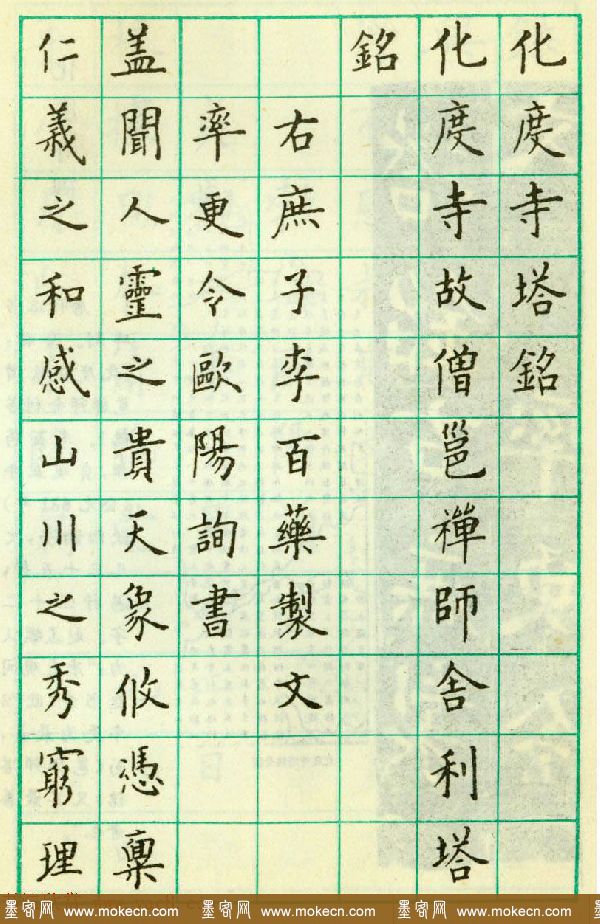 化度寺塔銘
化度寺故僧邕禪師舍利塔
銘
右庶子李百藥製文
率更令歐陽詢書
盖聞人靈之貴天象攸憑稟
仁義之和感山川之秀窮理
墨客网 www.mokecn.com 墨客网 www.mokecn.com 墨客网 www.mokecn.com 墨客网 www.mokecn.com